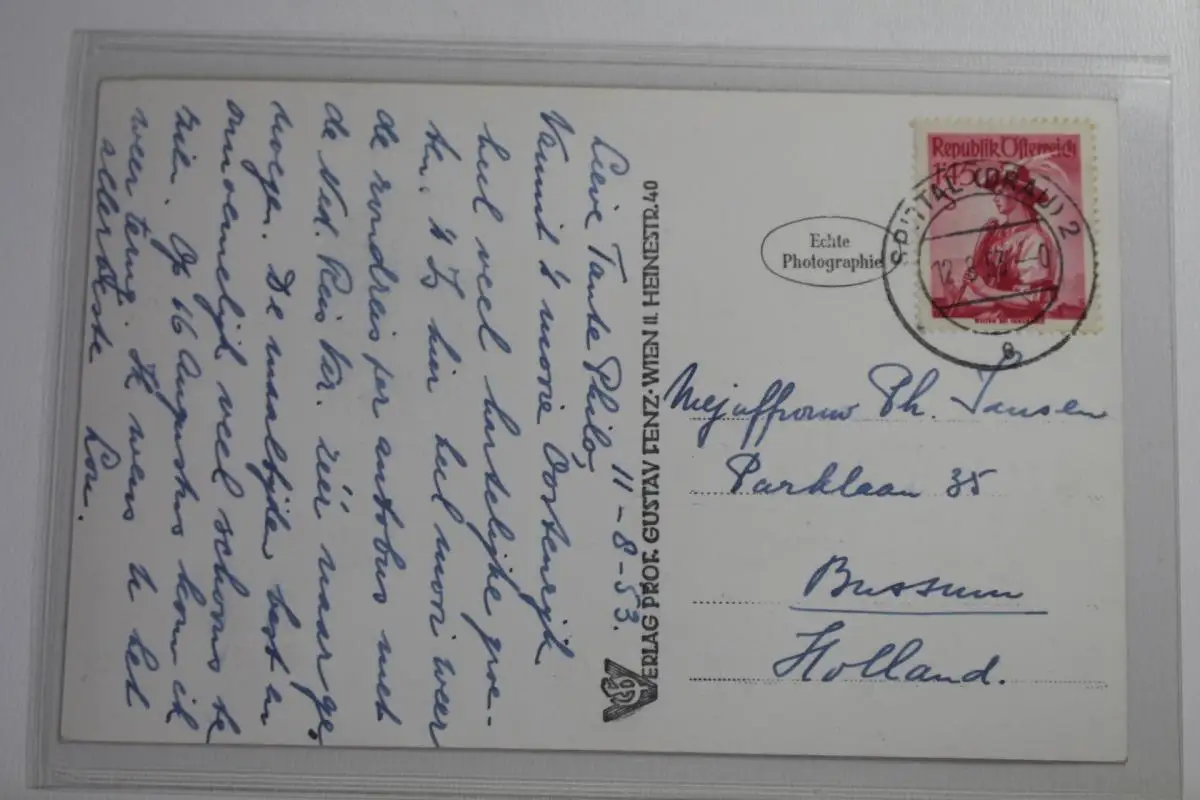 11-8-53.
Lieve Tante Philo,
Vanuit 't mooie Oostenrijk
heel veel hartelijke groe-
ten. 't Is hier heel mooi weer
de rondreis per autobus met
de Ned. Reis Ver. zéér naar ge-
noegen. De maaltijden best en
onnoemelijk veel schoons te
zien. Op 16 Augustus kom ik
weer terug. Ik wens U het
allerbeste Lou.
VERLAG PROF. GUSTAV FENZ·WIEN II. HEINESTR. 40
Echte
Photographie
Republik Österreich
SPITTAL (DRAU) 2
Mejuffrouw Ph. Jansen
Parklaan 35
Bussum
Holland.